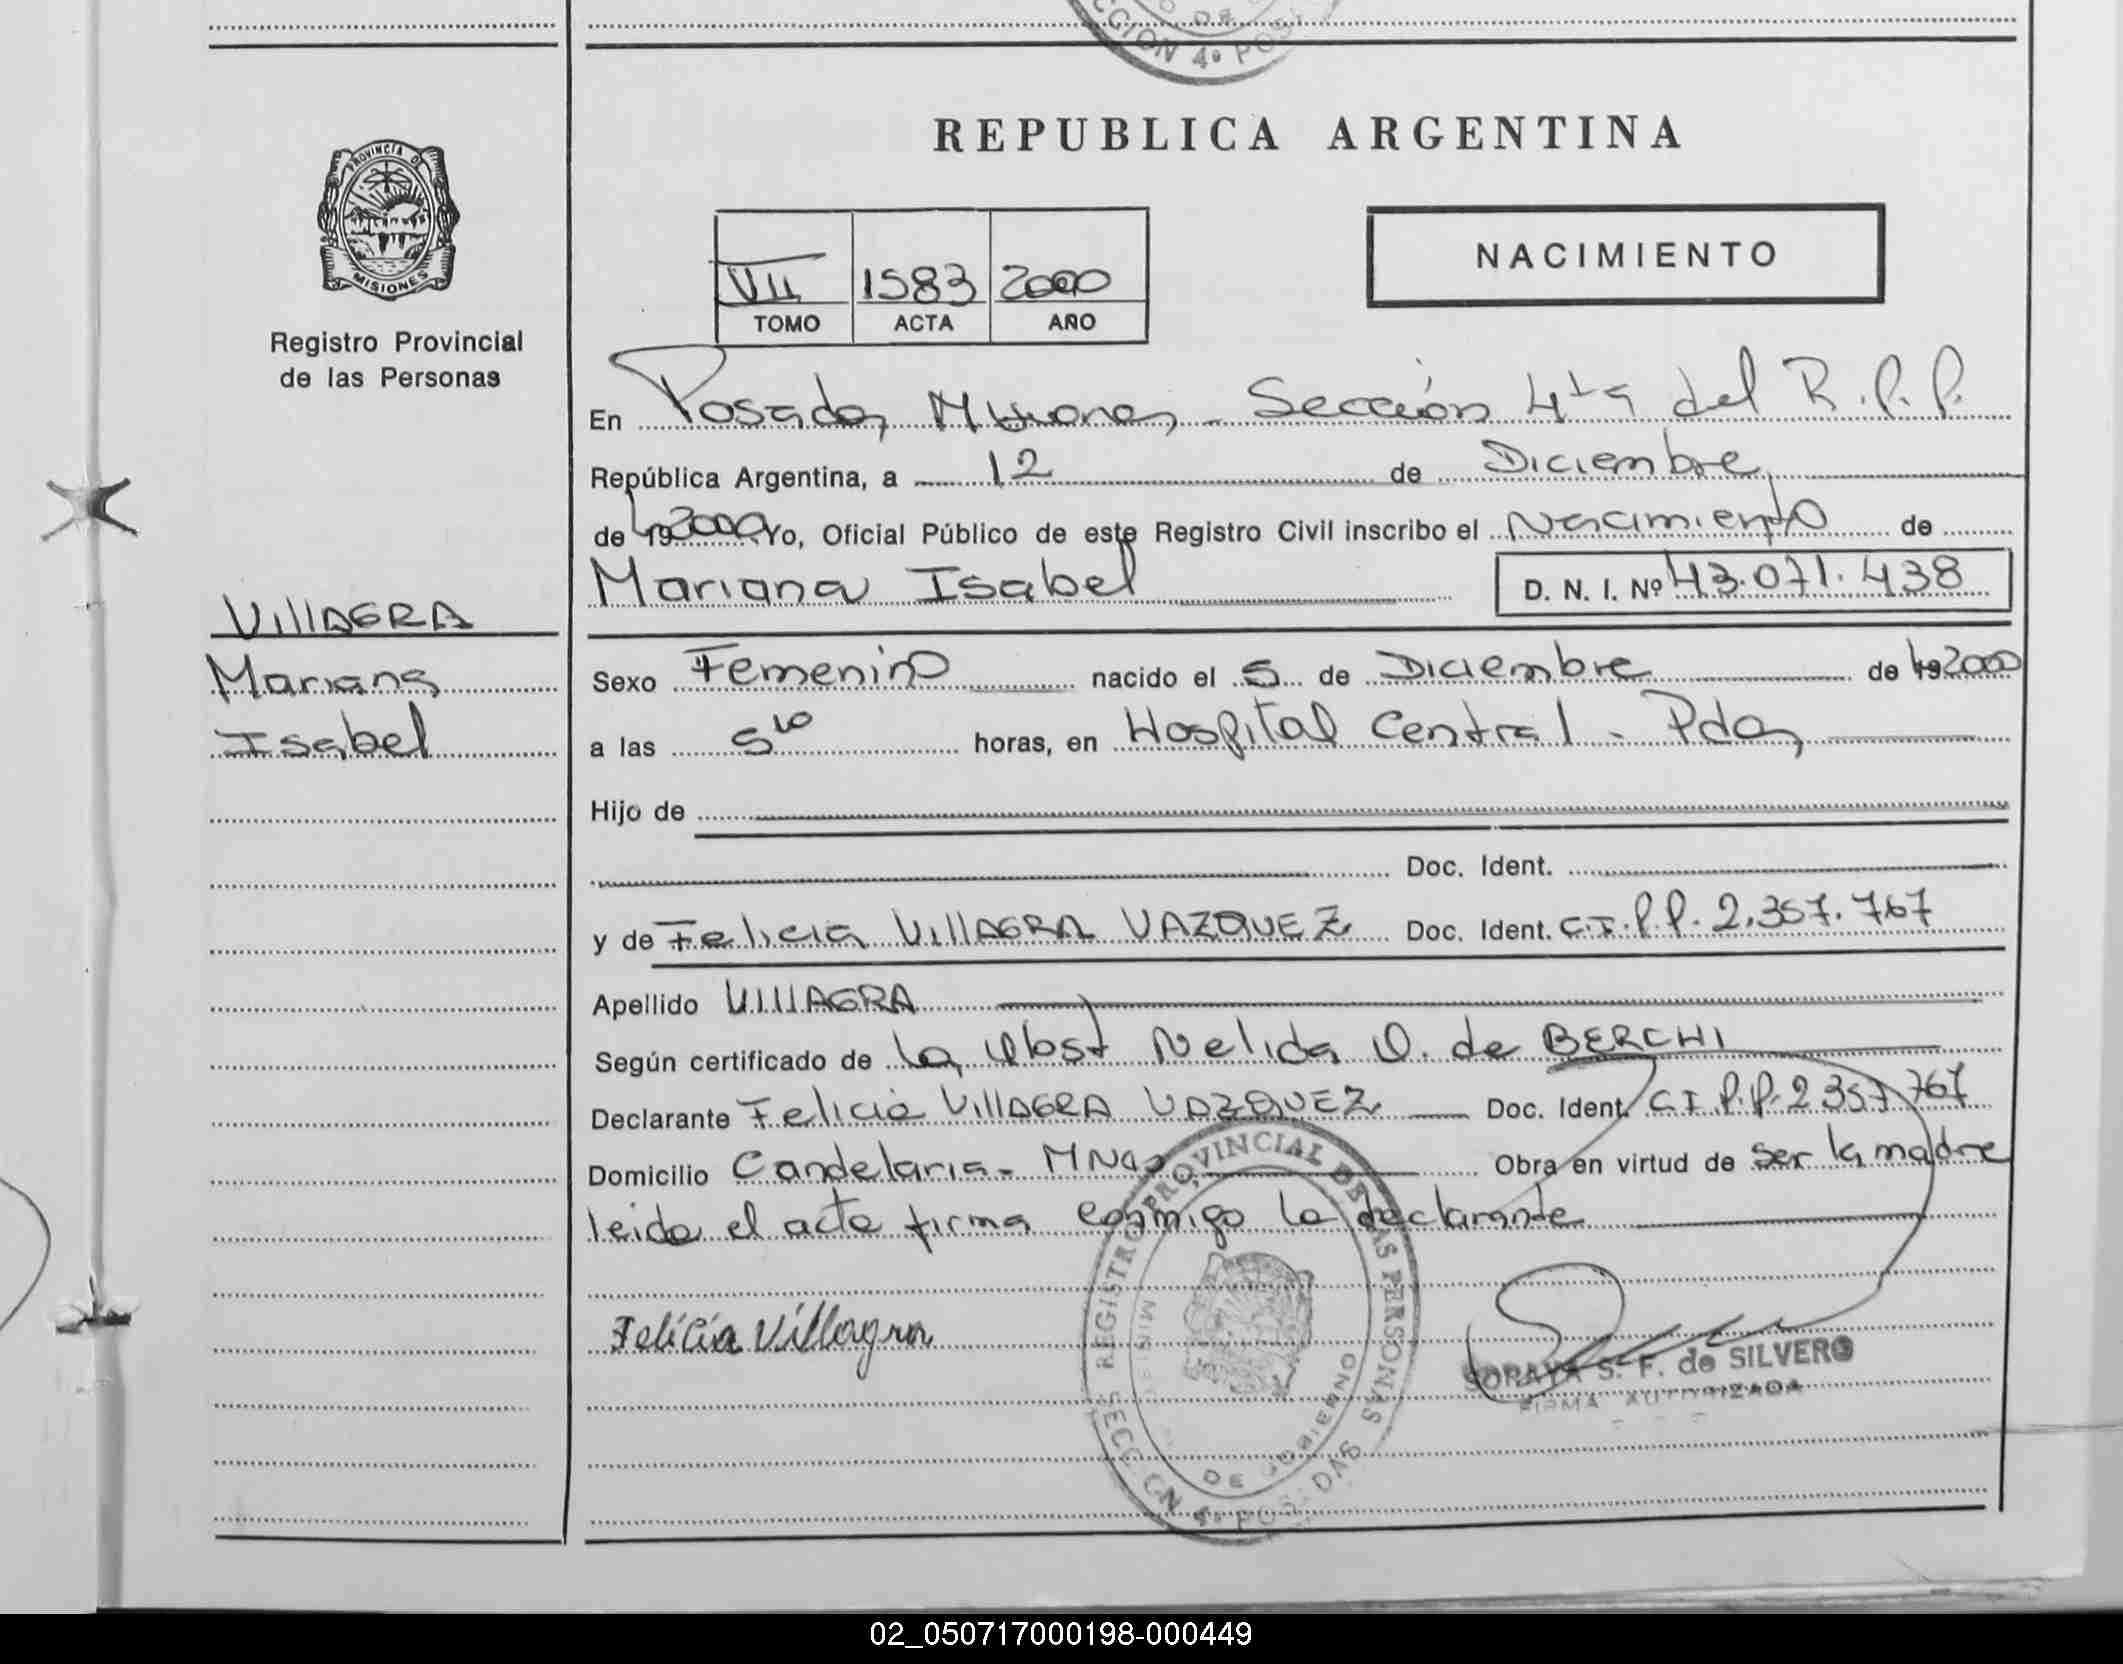 CCION 4ª POS
DE
REPUBLICA ARGENTINA
PROVINCIA D
MISIONES
Registro Provincial
de las Personas
VII 1583 2000
TOMO ACTA AÑO
NACIMIENTO
En Posadas, Misiones, Sección 4ta del R.P.P.
República Argentina, a 12 de Diciembre
de 19 2000 Yo, Oficial Público de este Registro Civil inscribo el Nacimiento de
Mariana Isabel D. N. I. Nº 43.071.438
VIllAGRA
Mariana
Isabel
Sexo Femenino nacido el 5 de Diciembre de 19 2000
a las 5 10 horas, en Hospital Central - Pdas
Hijo de
Doc. Ident.
y de Felicia VIllAGRA VAZQUEZ Doc. Ident. C.I.P.P. 2.357.767
Apellido VIllAGRA
Según certificado de la Obst Nelida O. de BERCHI
Declarante Felicia VIllAGRA VAZQUEZ Doc. Ident. C.I.P.P. 2 357 767
Domicilio Candelaria - MNes Obra en virtud de ser la madre
leida el acta firma conmigo la declarante
Felicia Villagra
REGISTRO PROVINCIAL DE LAS PERSONAS
DE GOBIERNO
SECCION 4ª POSADAS
SORAYA S. F. de SILVERO
FIRMA AUTORIZADA
02_050717000198-000449